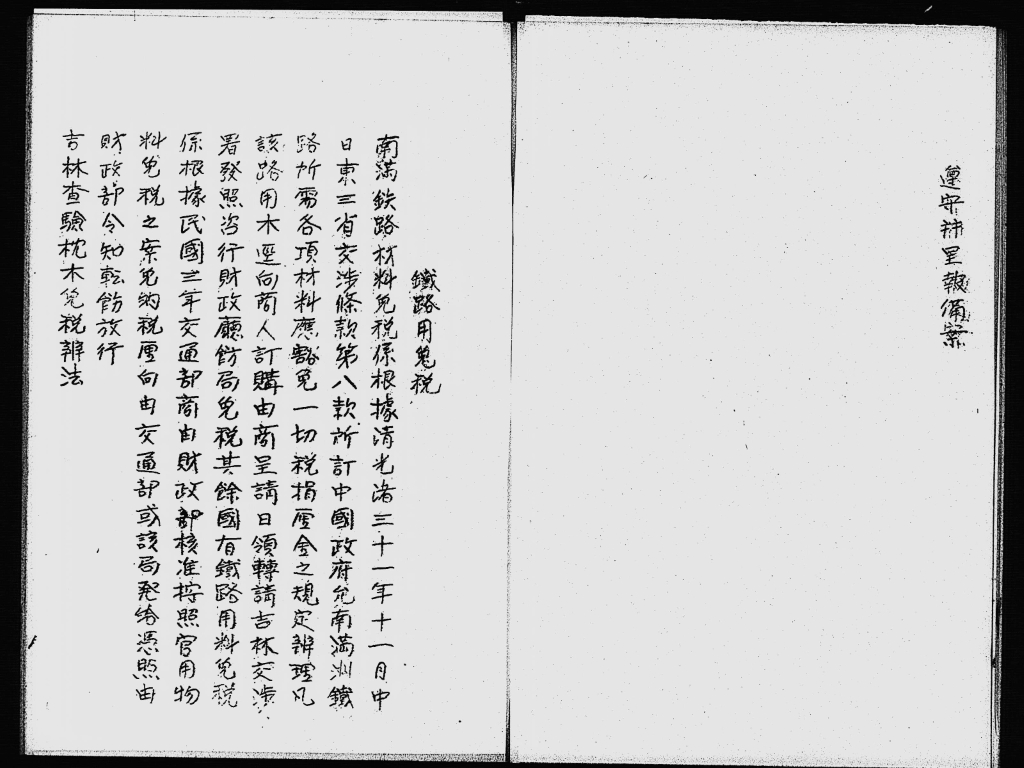 遵守辦呈報備案
鐵路用免税
南満鉄路材料免税係根據清光緒三十一年十一月中
日東三省交渉條款第八款所訂中國政府允南満洲鐵
路所需各項材料應豁免一切税捐厘金之規定辨理凡
該路用木逕向商人訂購由商呈請日領轉請吉林交渉
署發照咨行財政廳飭局免税其餘國有鐵路用料免税
係根據民國三年交通部商由財政部核准按照官用物
料免税之案免納税厘向由交通部或該局発給憑照由
財政部令知転飭放行
吉林查驗枕木免税辨法